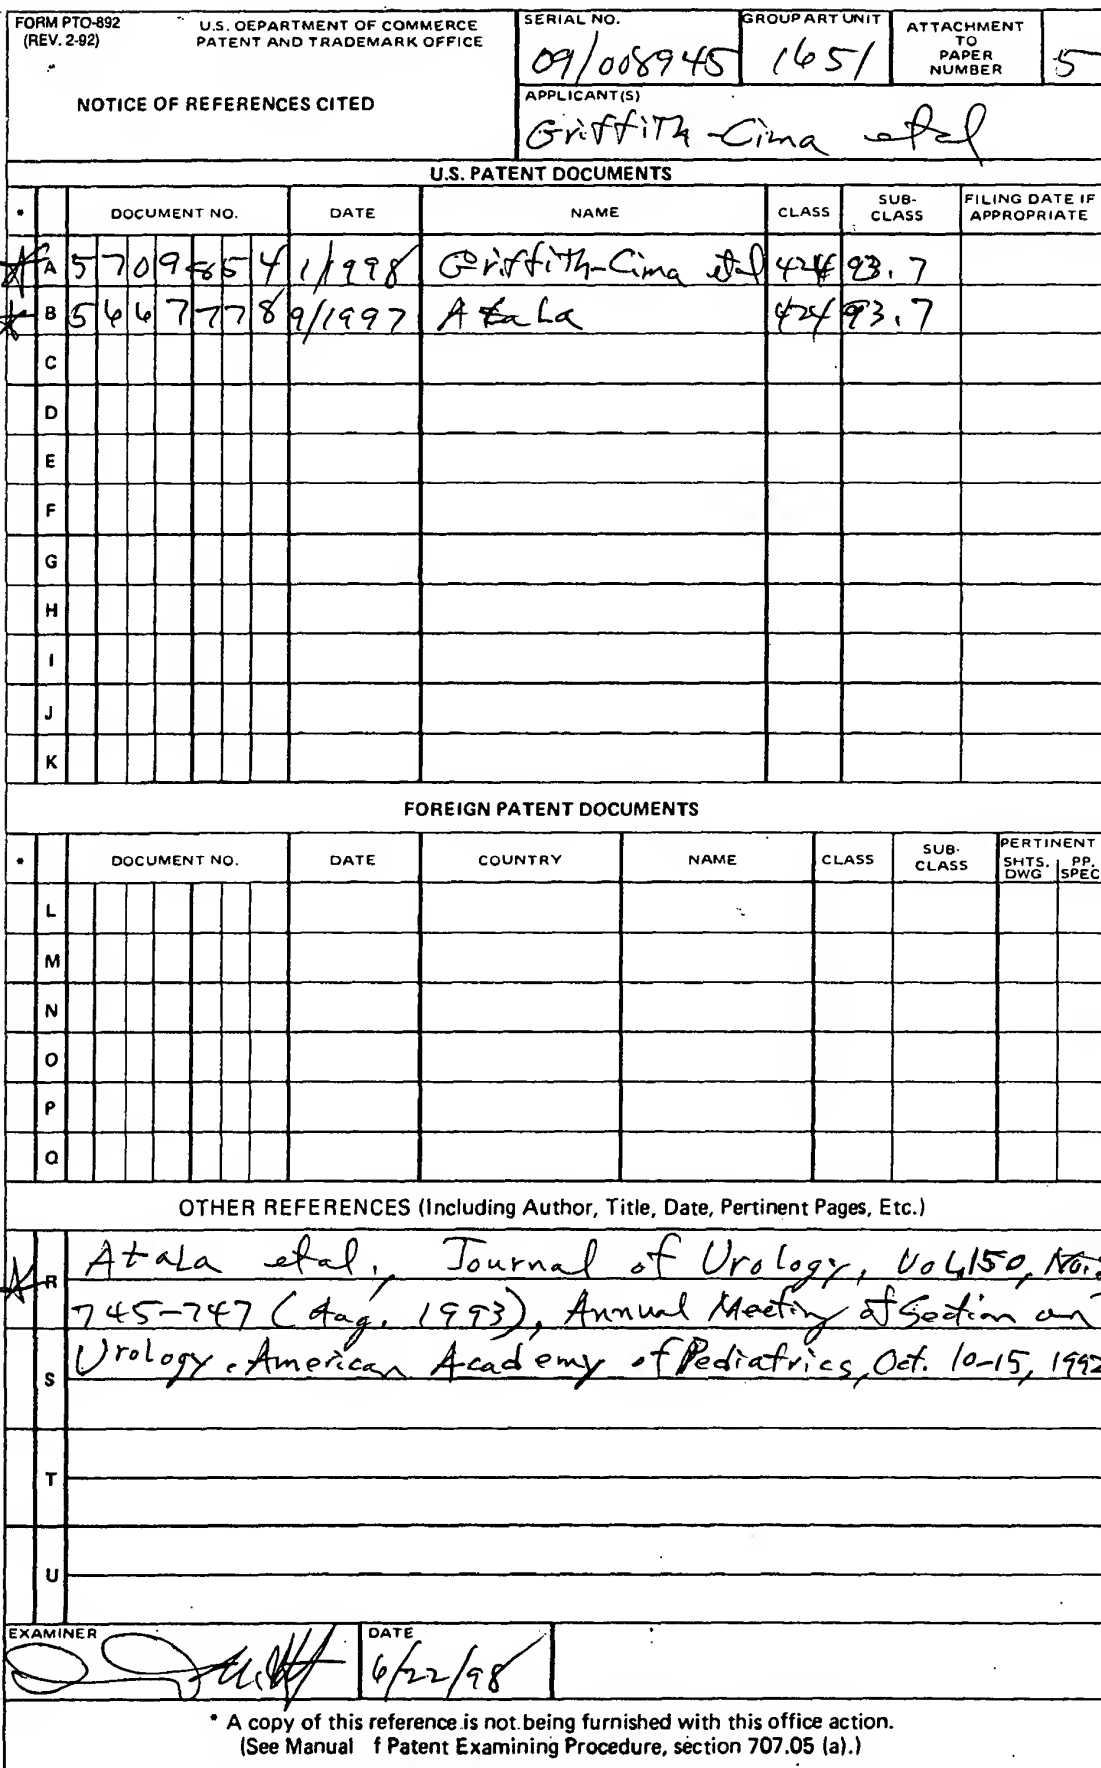 FORM PTO-892
(REV. 2-92)
U.S. DEPARTMENT OF COMMERCE
PATENT AND TRADEMARK OFFICE
NOTICE OF REFERENCES CITED
SERIAL NO.
09/008945
GROUP ART UNIT
1651
ATTACHMENT
TO
PAPER
NUMBER
5
APPLICANT(S)
Griffith-Cima et al
U.S. PATENT DOCUMENTS
* DOCUMENT NO. DATE NAME CLASS SUB-CLASS FILING DATE IF APPROPRIATE
* A 5709854 1/1998 Griffith-Cima et al 424 93.7
* B 5667778 9/1997 Atala 424 93.7
C
D
E
F
G
H
I
J
K
FOREIGN PATENT DOCUMENTS
* DOCUMENT NO. DATE COUNTRY NAME CLASS SUB-CLASS PERTINENT SHTS. DWG PP. SPEC
L
M
N
O
P
Q
OTHER REFERENCES (Including Author, Title, Date, Pertinent Pages, Etc.)
* R Atala et al., Journal of Urology, Vol. 150, No.
745-747 (Aug. 1993), Annual Meeting of Section on
S Urology, American Academy of Pediatrics, Oct. 10-15, 1992
T
U
EXAMINER
DATE
6/22/98
* A copy of this reference is not being furnished with this office action.
(See Manual f Patent Examining Procedure, section 707.05 (a).)